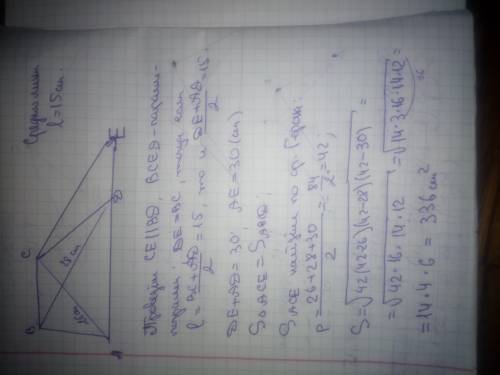 B C
A D E
Средняя линия
l = 15 см.
Проведём CE || BD, BCED - паралле-
лограмм. DE = BC, тогда если
l = (BC + AD)/2 = 15, то и (DE + AD)/2 = 15.
DE + AD = 30; AE = 30 (см)
S△ACE = SABCD;
SACE найдём по ф. Герона:
P = (26 + 28 + 30)/2 = 84/2 = 42;
S = √42(42-26)(42-28)(42-30) =
= √42·16·14·12 = √14·3·16·14·12 =
36
= 14·4·6 = 336 см²